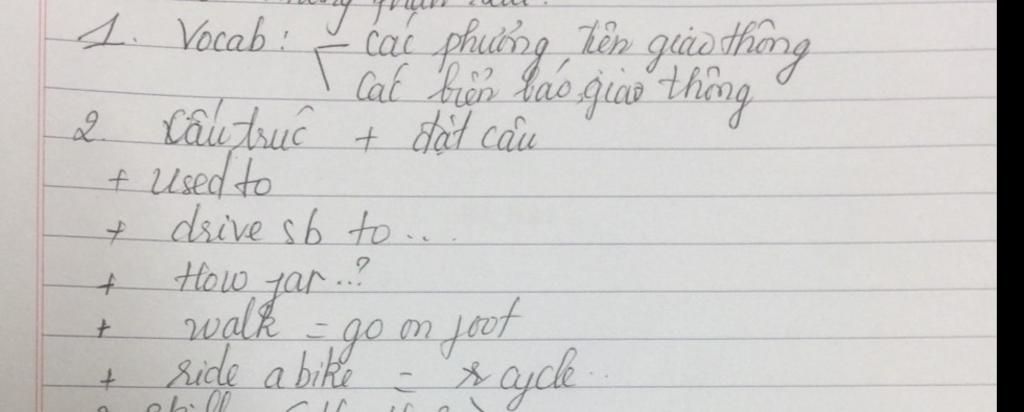 1. Vocab: - các phương tiện giao thông
các biển báo giao thông
2. Cấu trúc + đặt câu
+ Used to
+ drive sb to...
+ How far..?
+ walk = go on foot
+ ride a bike = cycle..